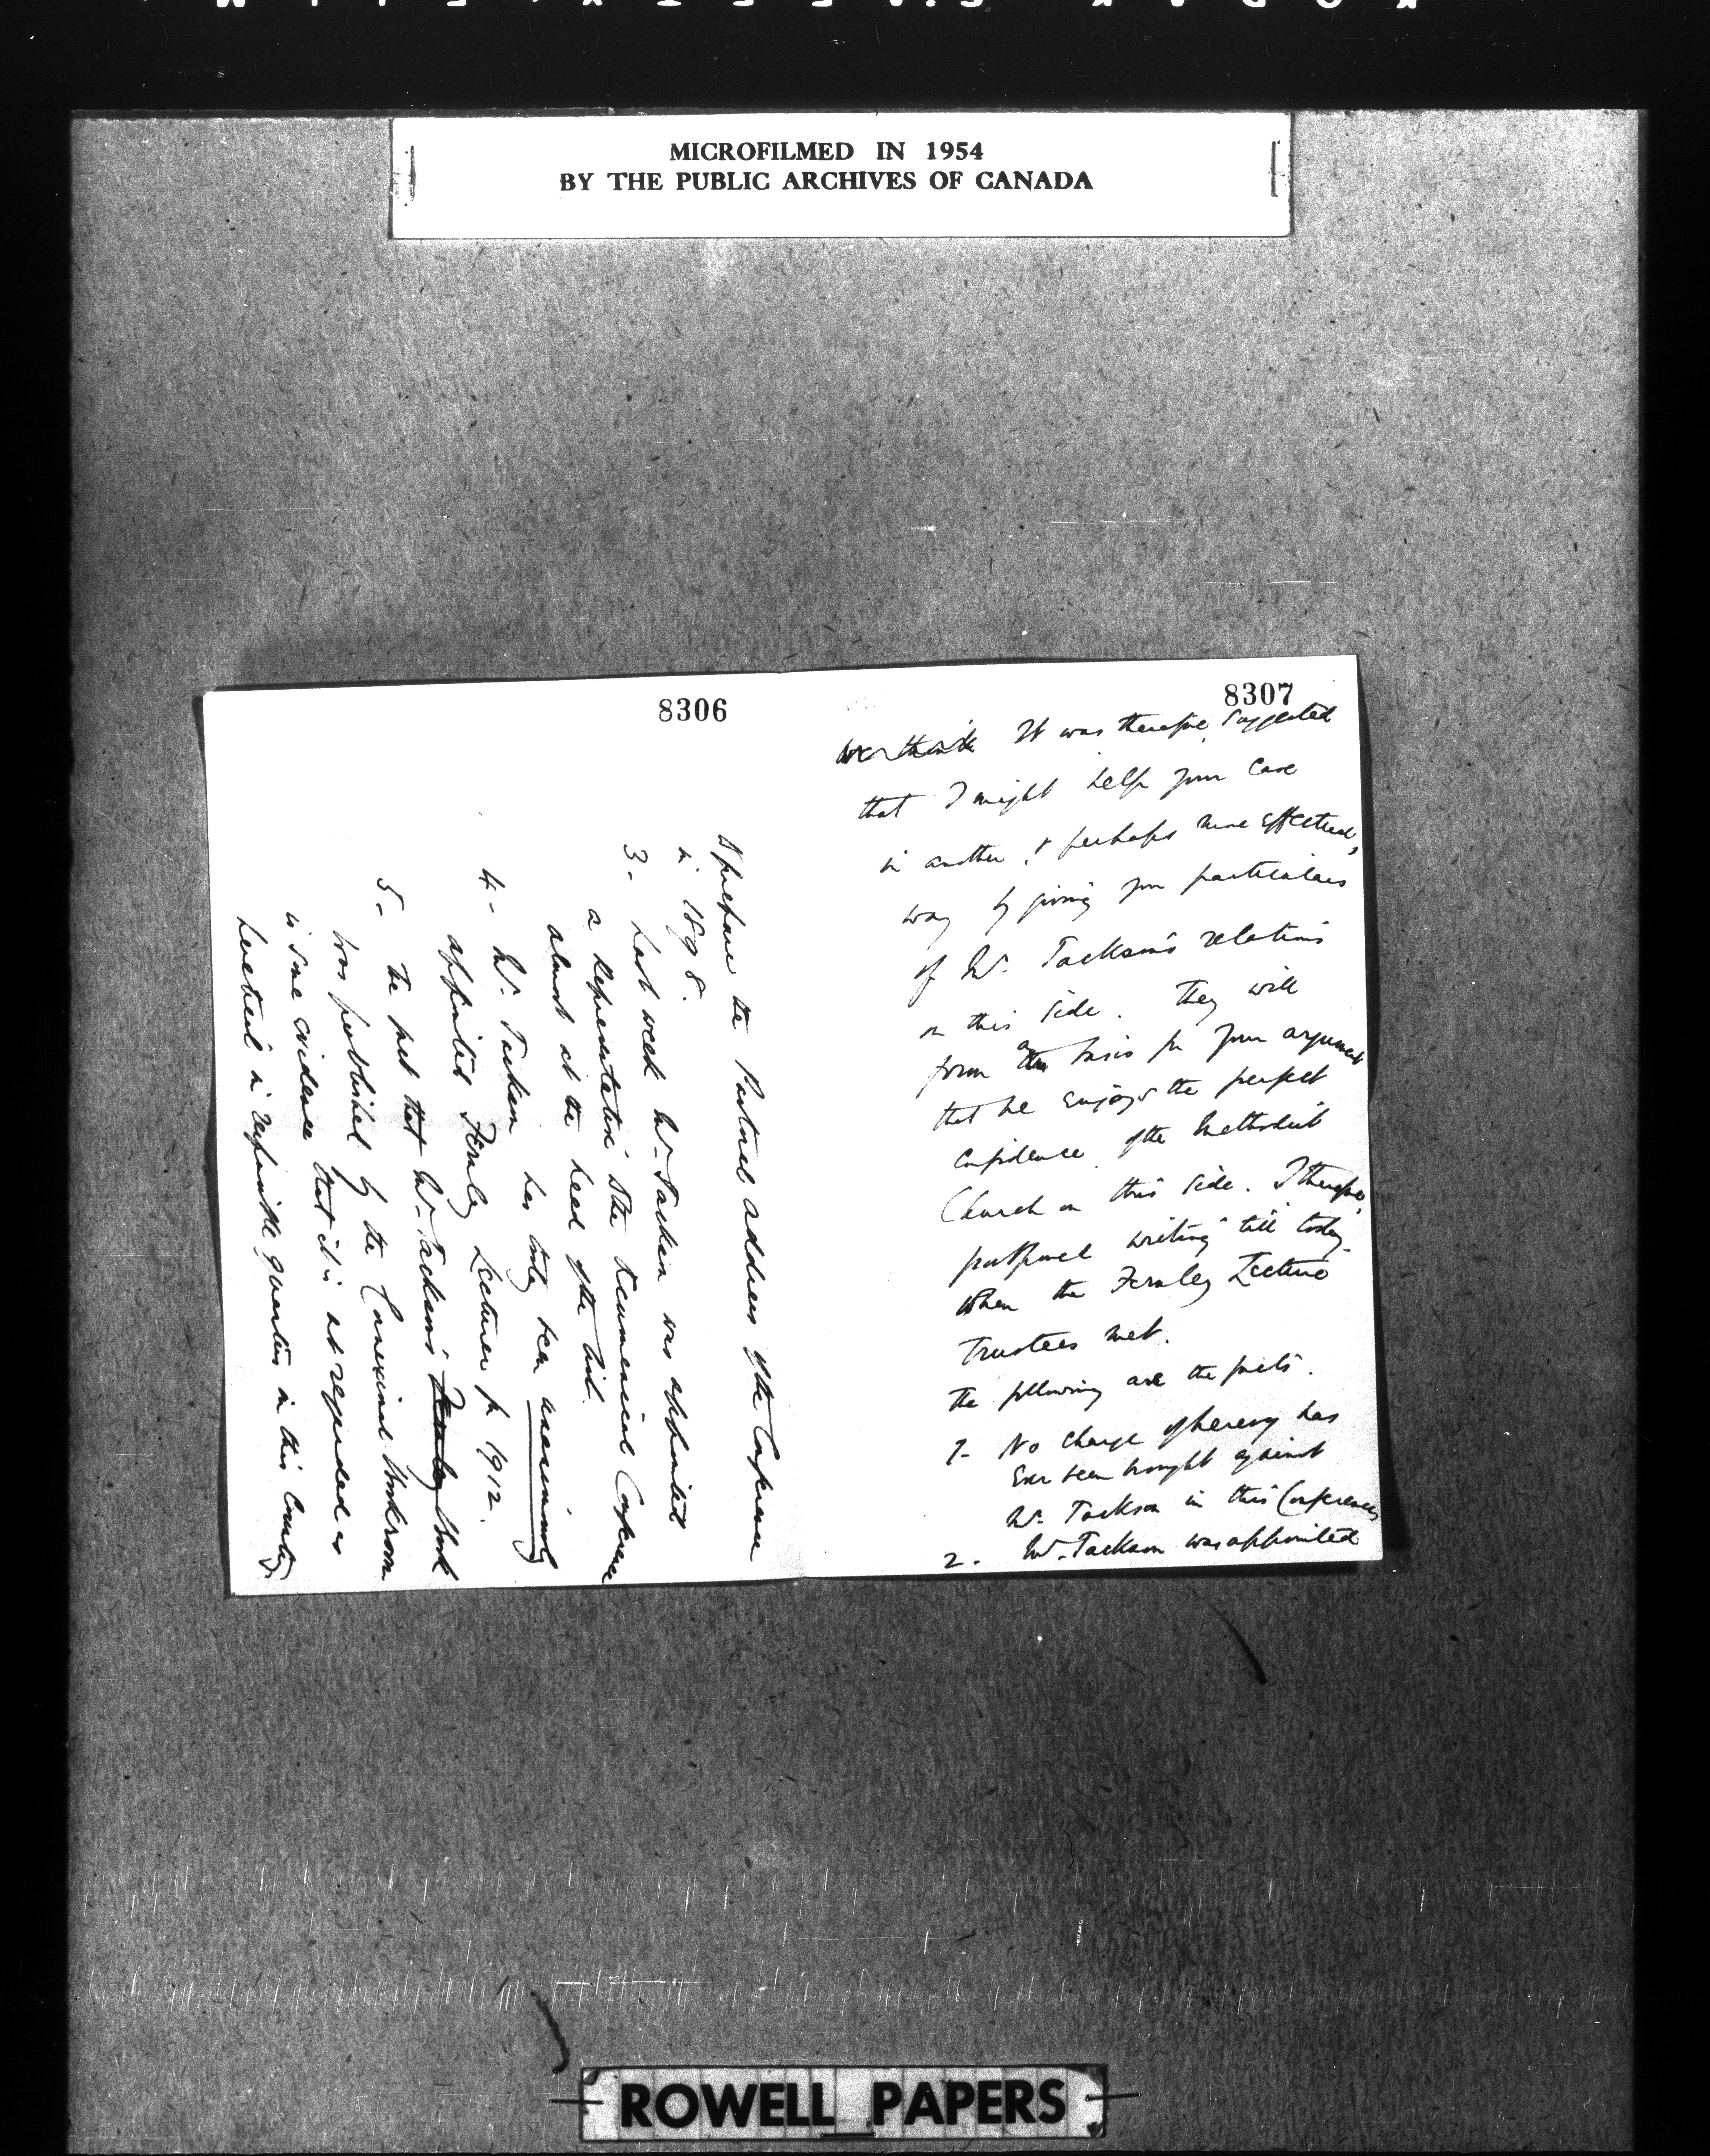 MICROFILMED IN 1954
BY THE PUBLIC ARCHIVES OF CANADA
8307
It was therefore suggested
that I might help your case
in another, & perhaps more effectual,
way by giving you particulars
of Mr. Jackson's relations
on this side. They will
form a basis for your argument
that he enjoys the perfect
confidence of the Methodist
Church on this side. I therefore
postponed writing till today
when the Fernley Lecture
Trustees met.
The following are the facts.
1- No charge of heresy has
ever been brought against
Mr. Jackson in this Conference
2. Mr. Jackson was appointed
8306
to prepare the Pastoral address of the Conference
in 1898.
3- Last week Mr. Jackson was appointed
a Representative to the Ecumenical Conference
almost at the head of the list.
4- Mr. Jackson has today been unanimously
appointed Fernley Lecturer for 1912.
5- The fact that Mr. Jackson's Fernley book
was published by the Connexional Bookroom
is some evidence that it is not regarded as
heretical in responsible quarters in this Country
ROWELL PAPERS